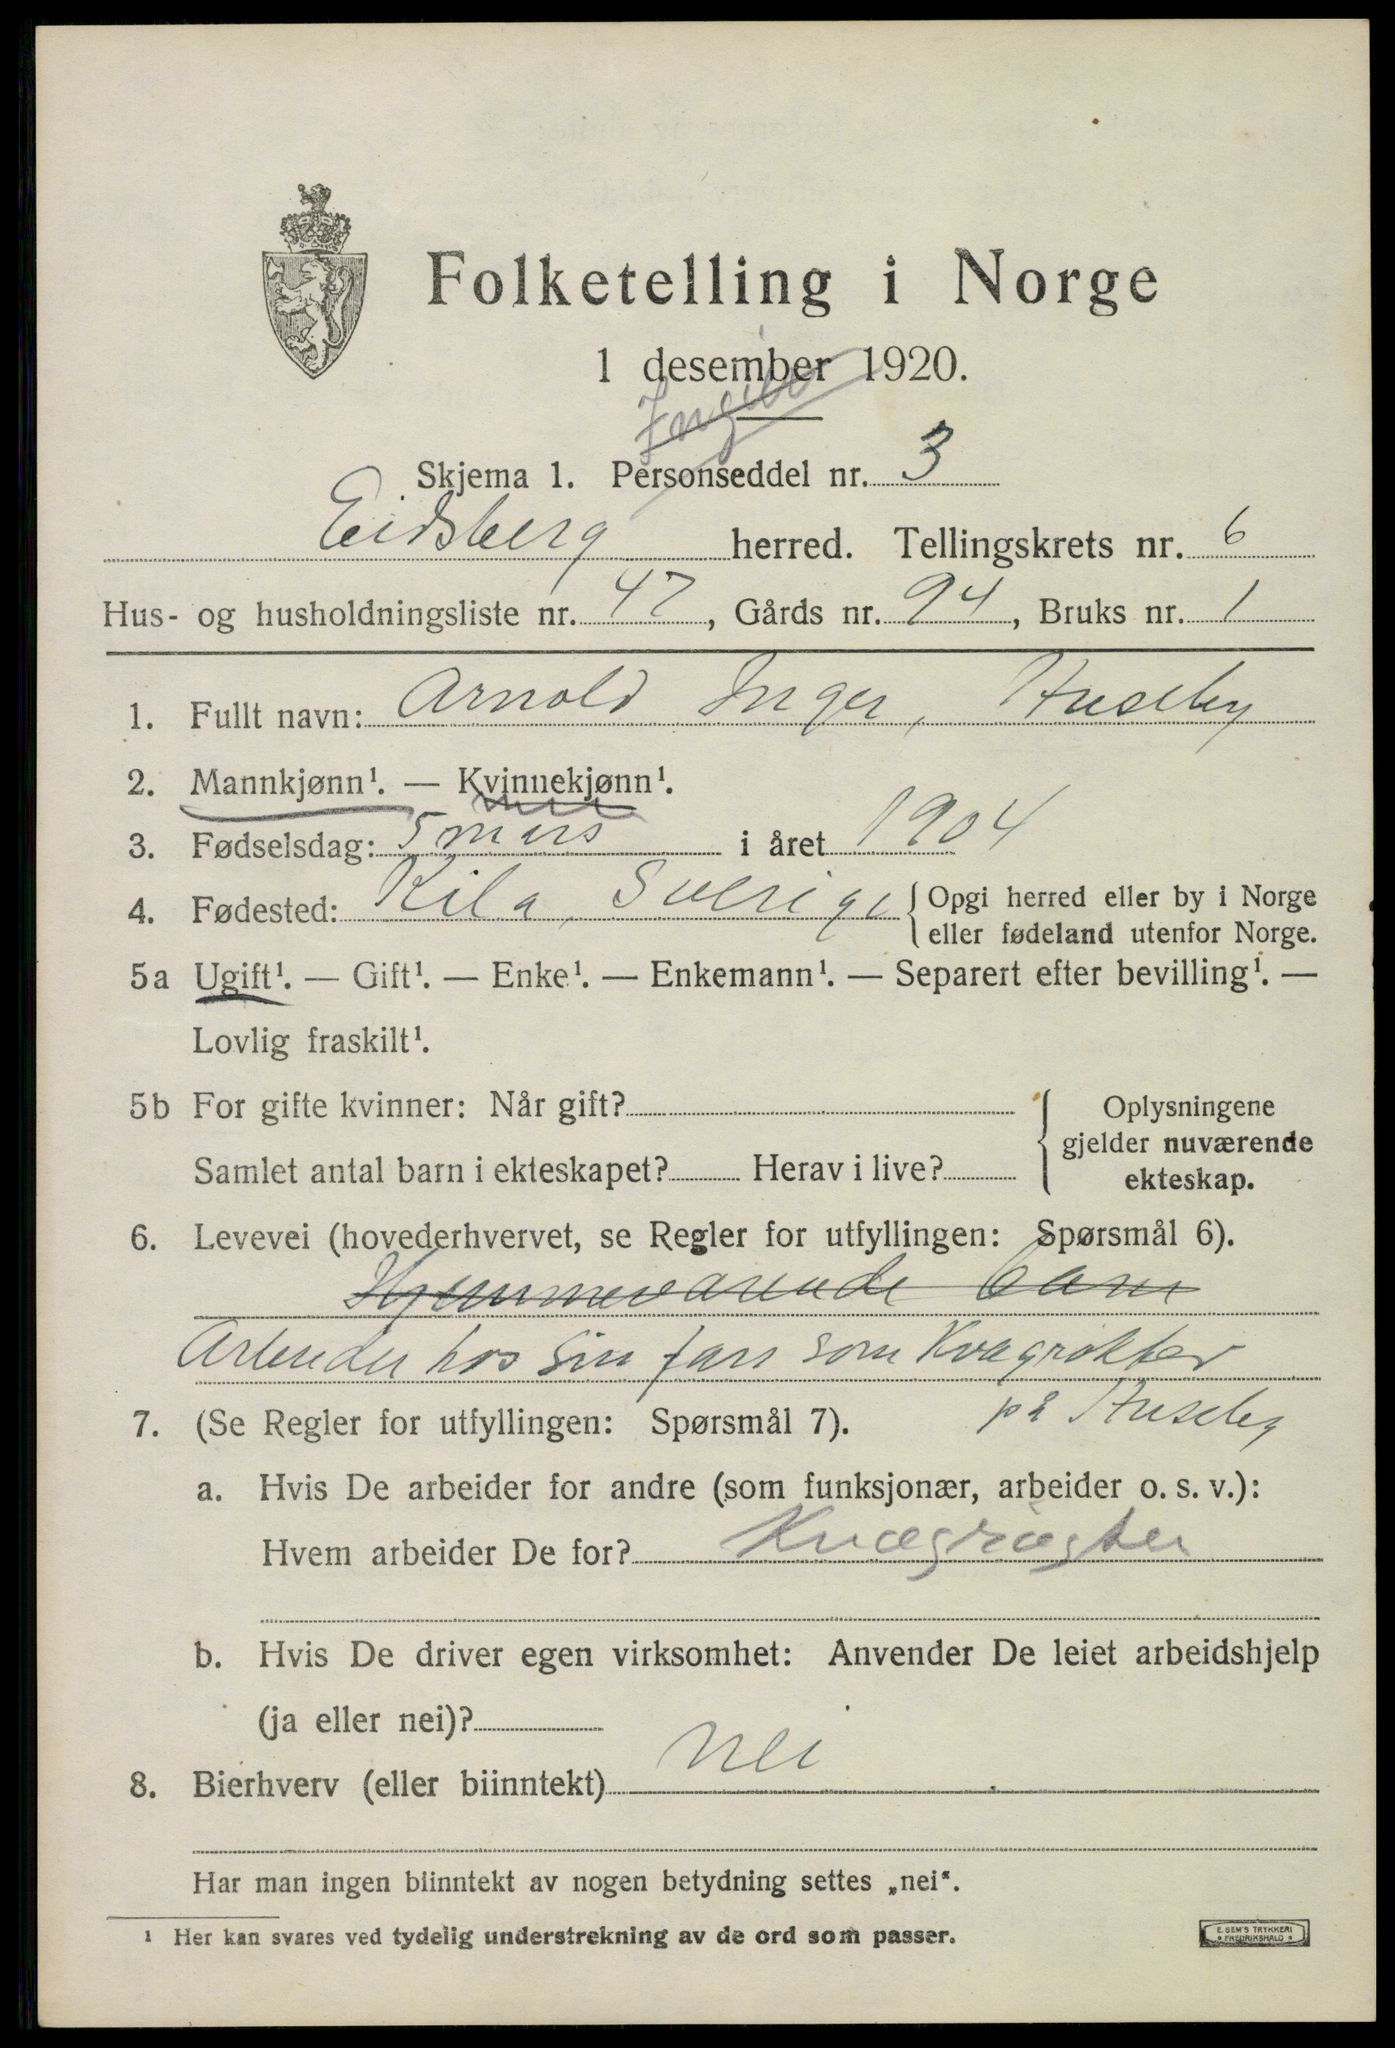 Folketelling i Norge
1 desember 1920.
Skjema 1. Personseddel nr. 3
Eidsberg herred. Tellingskrets nr. 6
Hus- og husholdningsliste nr. 47, Gårds nr. 94, Bruks nr. 1
1. Fullt navn: Arnold Inger, Huseby
2. Mannkjønn¹. — Kvinnekjønn¹.
3. Fødselsdag: 5 mars i året 1904
4. Fødested: Kila, Sverige { Opgi herred eller by i Norge
eller fødeland utenfor Norge.
5a Ugift¹. — Gift¹. — Enke¹. — Enkemann¹. — Separert efter bevilling¹. —
Lovlig fraskilt¹.
5b For gifte kvinner: Når gift? Oplysningene
gjelder nuværende
Samlet antal barn i ekteskapet? Herav i live? ekteskap.
6. Levevei (hovederhvervet, se Regler for utfyllingen: Spørsmål 6).
Hjemmeværende barn
Arbeider hos sin farr som Kvægrøkter
på Huseby
7. (Se Regler for utfyllingen: Spørsmål 7).
a. Hvis De arbeider for andre (som funksjonær, arbeider o. s. v.):
Hvem arbeider De for? Kvægrøgter
b. Hvis De driver egen virksomhet: Anvender De leiet arbeidshjelp
(ja eller nei)?
8. Bierhverv (eller biinntekt) nei
Har man ingen biinntekt av nogen betydning settes „nei“.
¹ Her kan svares ved tydelig understrekning av de ord som passer.
E. SEM'S TRYKKERI
FREDRIKSHALD